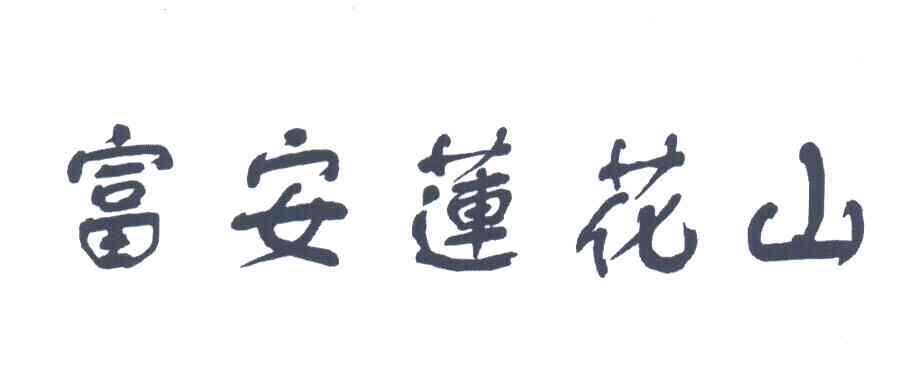 富安蓮花山